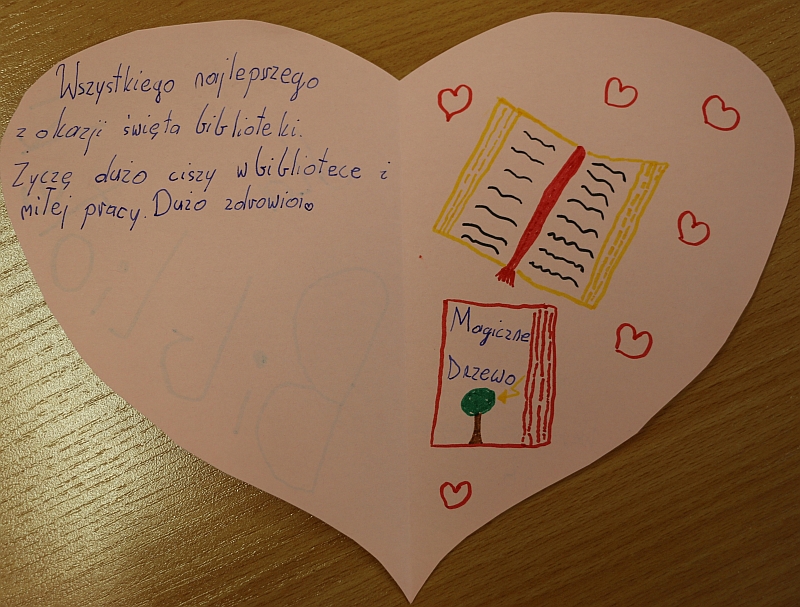 Wszystkiego najlepszego
z okazji święta biblioteki.
Zyczę dużo ciszy w bibliotece i
miłej pracy. Dużo zdrowioi♥
Magiczne
Drzewo